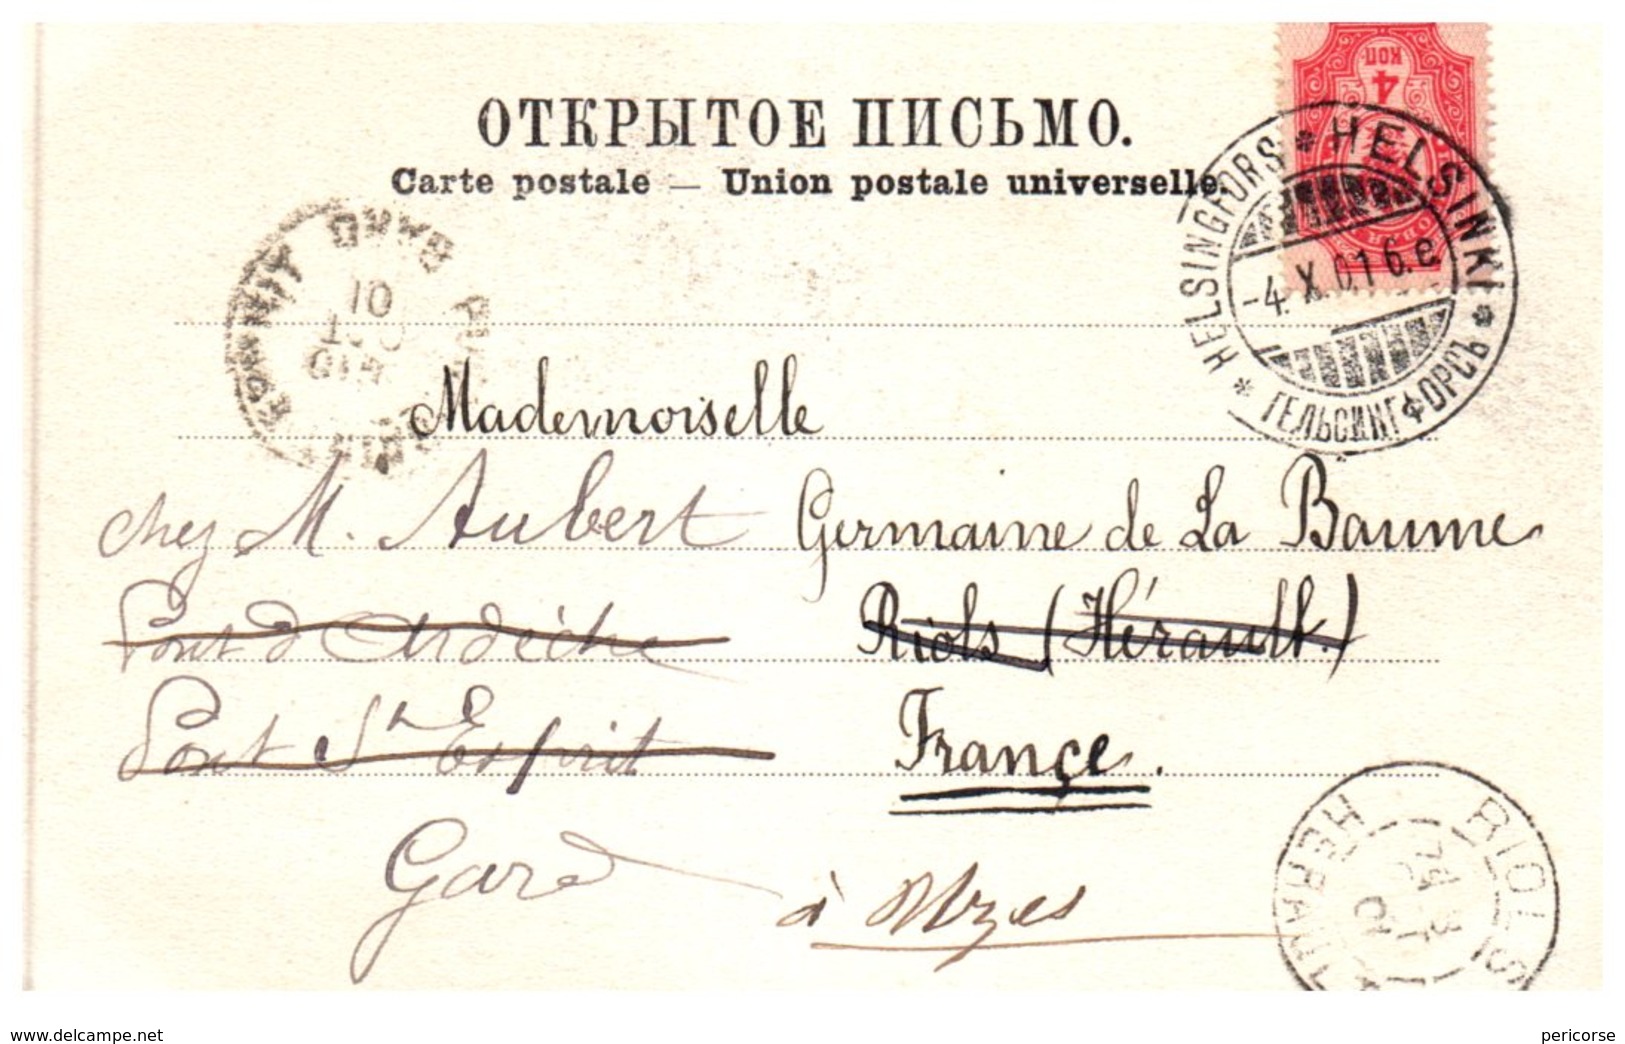 ОТКРЫТОЕ ПИСЬМО.
Carte postale — Union postale universelle.
4
КОП
HELSINGFORS * HELSINKI * ГЕЛЬСИНГФОРСЪ *
-4.X.01 6.e
GARD
01
OCT
Mademoiselle
chez M. Aubert
Germaine de La Baume
Pont d'Ardèche
Riols (Hérault.)
Pont St Esprit
France.
Gard
à Uzes
RIOLS
HERAULT
01
www.delcampe.net
pericorse